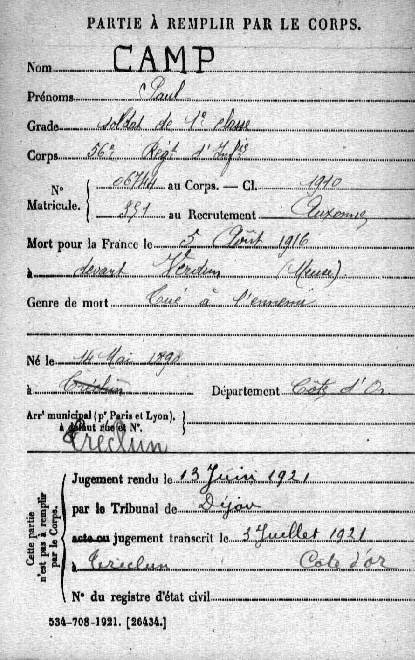 PARTIE À REMPLIR PAR LE CORPS.
Nom CAMP
Prénoms Paul
Grade soldat de 1e classe
Corps 56e Régt d'Infie
N° Matricule. au Corps. — Cl. 1910
391 au Recrutement Auxonne
Mort pour la France le 5 Août 1916
à devant Verdun (Meuse)
Genre de mort Tué à l'ennemi
Né le 14 Mai
à Tréclun Département Côte d'Or
Arrt municipal (pr Paris et Lyon).
à défaut rue et N°.
Treclun
Cette partie n'est pas à remplir par le Corps.
Jugement rendu le 13 Juin 1921
par le Tribunal de Dijon
acte ou jugement transcrit le 3 Juillet 1921
à Treclun Cote d'or
N° du registre d'état civil
534-708-1921. [26434.]